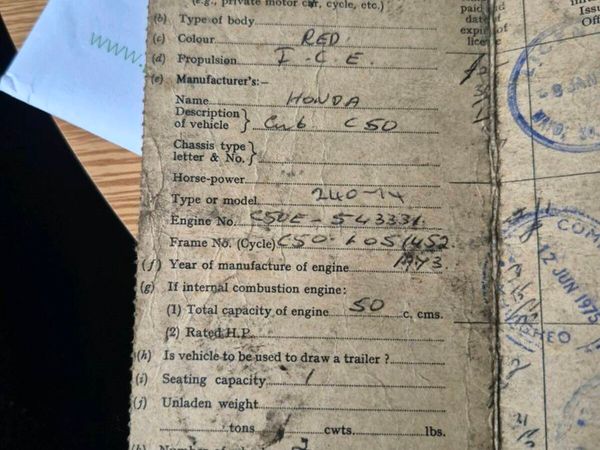 (e.g., private motor car, cycle, etc.)
(b) Type of body
(c) Colour RED
(d) Propulsion I.C.E.
(e) Manufacturer's:—
Name HONDA
Description of vehicle } Cub C50
Chassis type letter & No. }
Horse-power
Type or model 240-14
Engine No. C50E-543331
Frame No. (Cycle) C50-K051452
(f) Year of manufacture of engine
(g) If internal combustion engine:
(1) Total capacity of engine 50 c. cms.
(2) Rated H.P.
(h) Is vehicle to be used to draw a trailer?
(i) Seating capacity 1
(j) Unladen weight
tons cwts. lbs.
2
paid
date of
expir of
Issu
Off
12 JUN 1975
www.